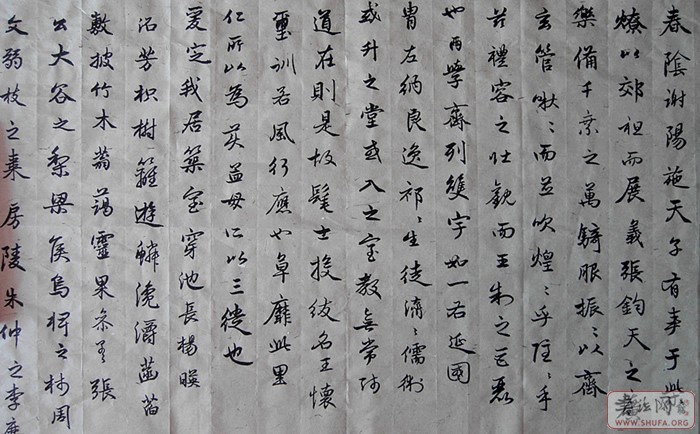 春陰謝陽施天子有事于柴
燎以郊祖而展義張鈞天之
樂備千乘之萬騎服振〻以齊
玄管啾〻而並吹煌〻乎隱〻乎
茲禮容之壯觀而王制之巨麗
也兩學齊列雙宇如一右延國
胄左納良逸祁〻生徒濟〻儒術
或升之堂或入之室教無常師
道在則是故髦士投紱名王懷
璽訓若風行應如草靡此里
仁所以為美孟母所以三徙也
爰定我居築室穿池長楊暎
沼芳枳樹籬遊鱗瀺灂菡萏
敷披竹木蓊藹靈果參差張
公大谷之梨梁侯烏椑之柿周
文弱枝之棗房陵朱仲之李靡
書法网
WWW.SHUFA.ORG